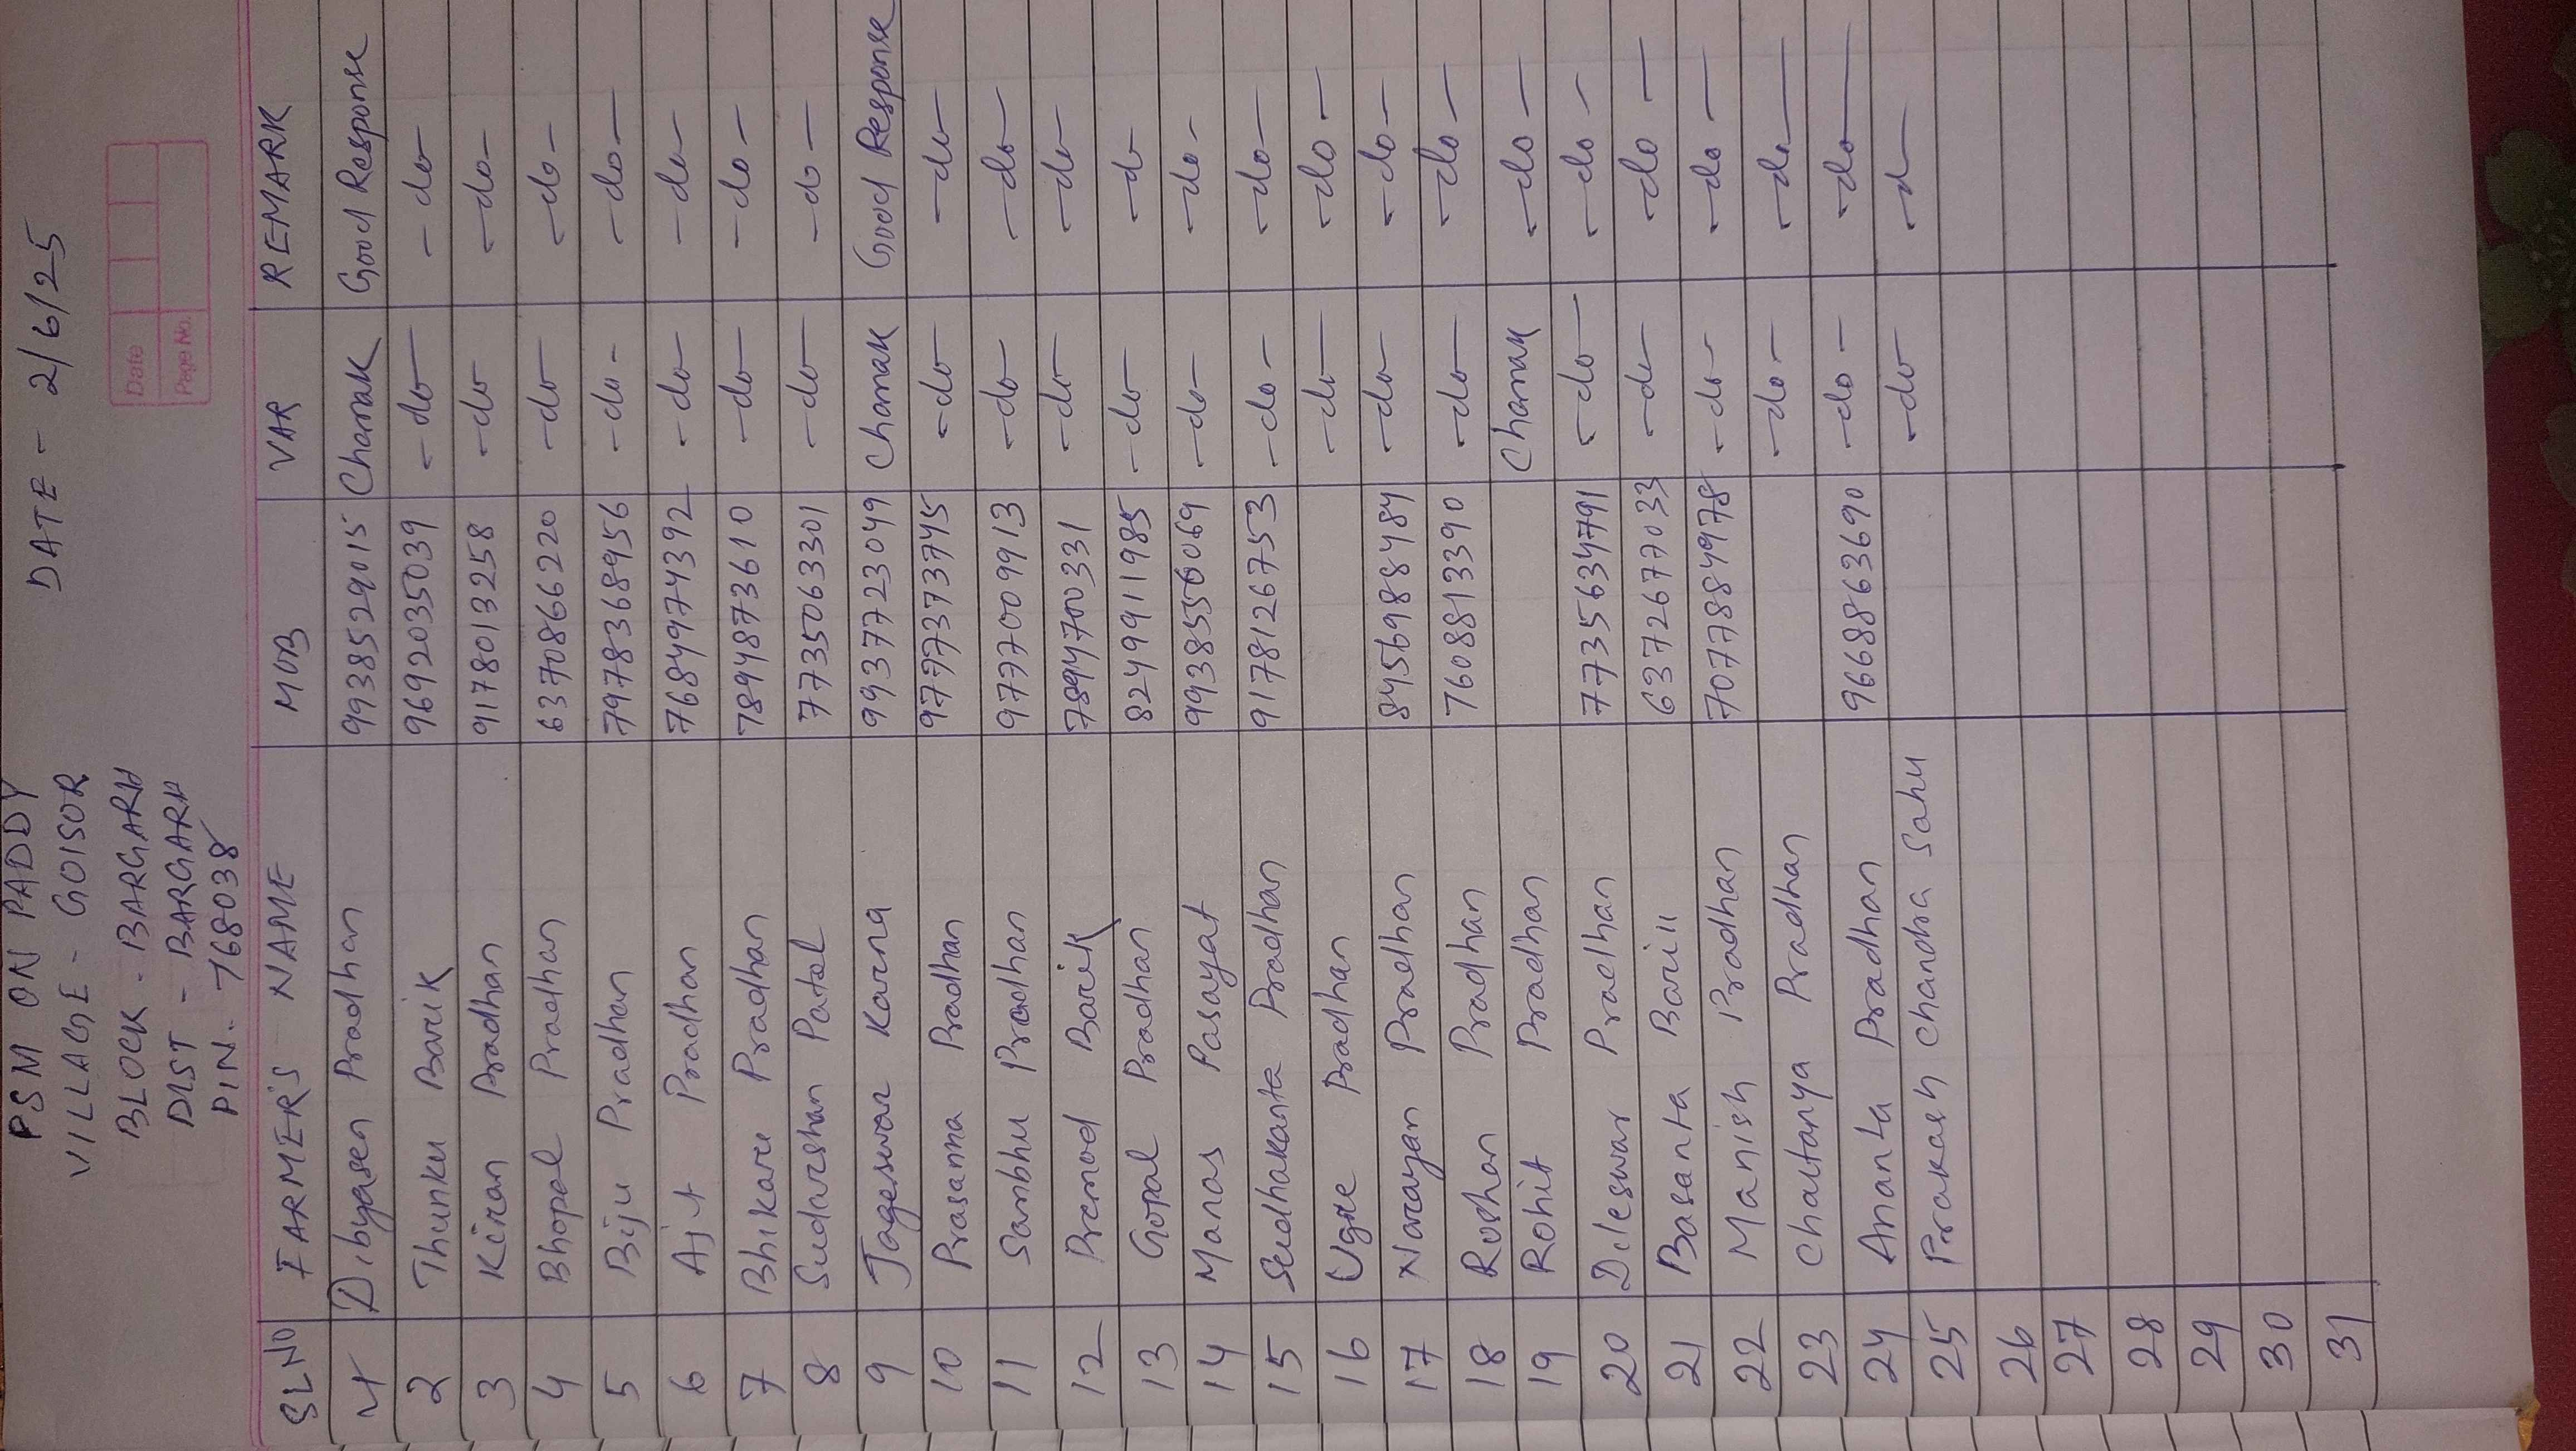 PSM ON PADDY DATE - 2/6/25
VILLAGE - GOISOR
BLOCK - BARGARH
DIST - BARGARH
PIN. 768038
Date
Page No.
SLNO FARMER'S NAME MOB VAR REMARK
1 Dibyasen Pradhan 9938529015 Chamak Good Response
2 Thunku Barik 9692035039 -do- -do-
3 Kiran Pradhan 9178013258 -do -do-
4 Bhopal Pradhan 6370866220 -do- -do-
5 Biju Pradhan 7978368956 -do- -do-
6 Ajit Pradhan 7684974392 -do- -do-
7 Bhikari Pradhan 7894873610 -do- -do-
8 Sudarshan Patel 7735063301 -do- -do-
9 Jageswar Karna 9937723049 Chamak Good Response
10 Prasanna Pradhan 9777373745 -do- -do-
11 Sambhu Pradhan 9777009913 -do- -do-
12 Premod Barik 7894700331 -do- -do-
13 Gopal Pradhan 8249911985 -do- -do-
14 Manas Pasayat 9938556069 -do- -do-
15 Sudhakanta Pradhan 9178126753 -do- -do-
16 Ugre Pradhan -do- -do-
17 Narayan Pradhan 8456988484 -do- -do-
18 Roshan Pradhan 7608813390 -do- -do-
19 Rohit Pradhan Chamak -do-
20 Dileswar Pradhan 7735634791 -do- -do-
21 Basanta Barik 6372677033 -do- -do-
22 Manish Pradhan 7077884978 -do- -do-
23 Chaitanya Pradhan -do- -do-
24 Ananta Pradhan 9668863690 -do- -do-
25 Prakash Chandra Sahu -do- -d-
26
27
28
29
30
31